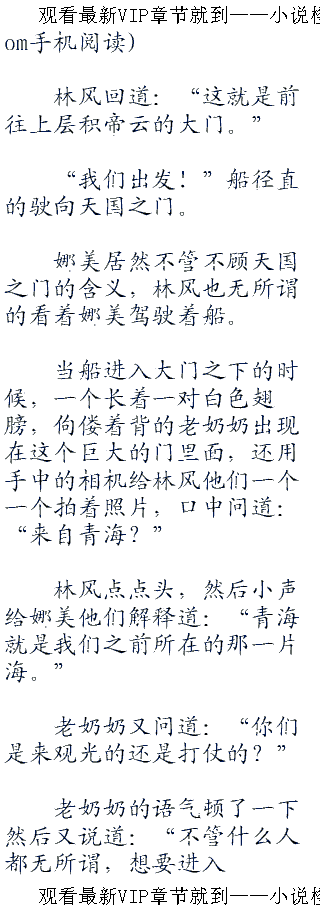 观看最新VIP章节就到——小说
om手机阅读）
林风回道：“这就是前
往上层积帝云的大门。”
“我们出发！”船径直
的驶向天国之门。
娜美居然不管不顾天国
之门的含义，林风也无所谓
的看着娜美驾驶着船。
当船进入大门之下的时
候，一个长着一对白色翅
膀，佝偻着背的老奶奶出现
在这个巨大的门里面，还用
手中的相机给林风他们一个
一个拍着照片，口中问道：
“来自青海？”
林风点点头，然后小声
给娜美他们解释道：“青海
就是我们之前所在的那一片
海。”
老奶奶又问道：“你们
是来观光的还是打仗的？”
老奶奶的语气顿了一下
然后又说道：“不管什么人
都无所谓，想要进入
观看最新VIP章节就到——小说